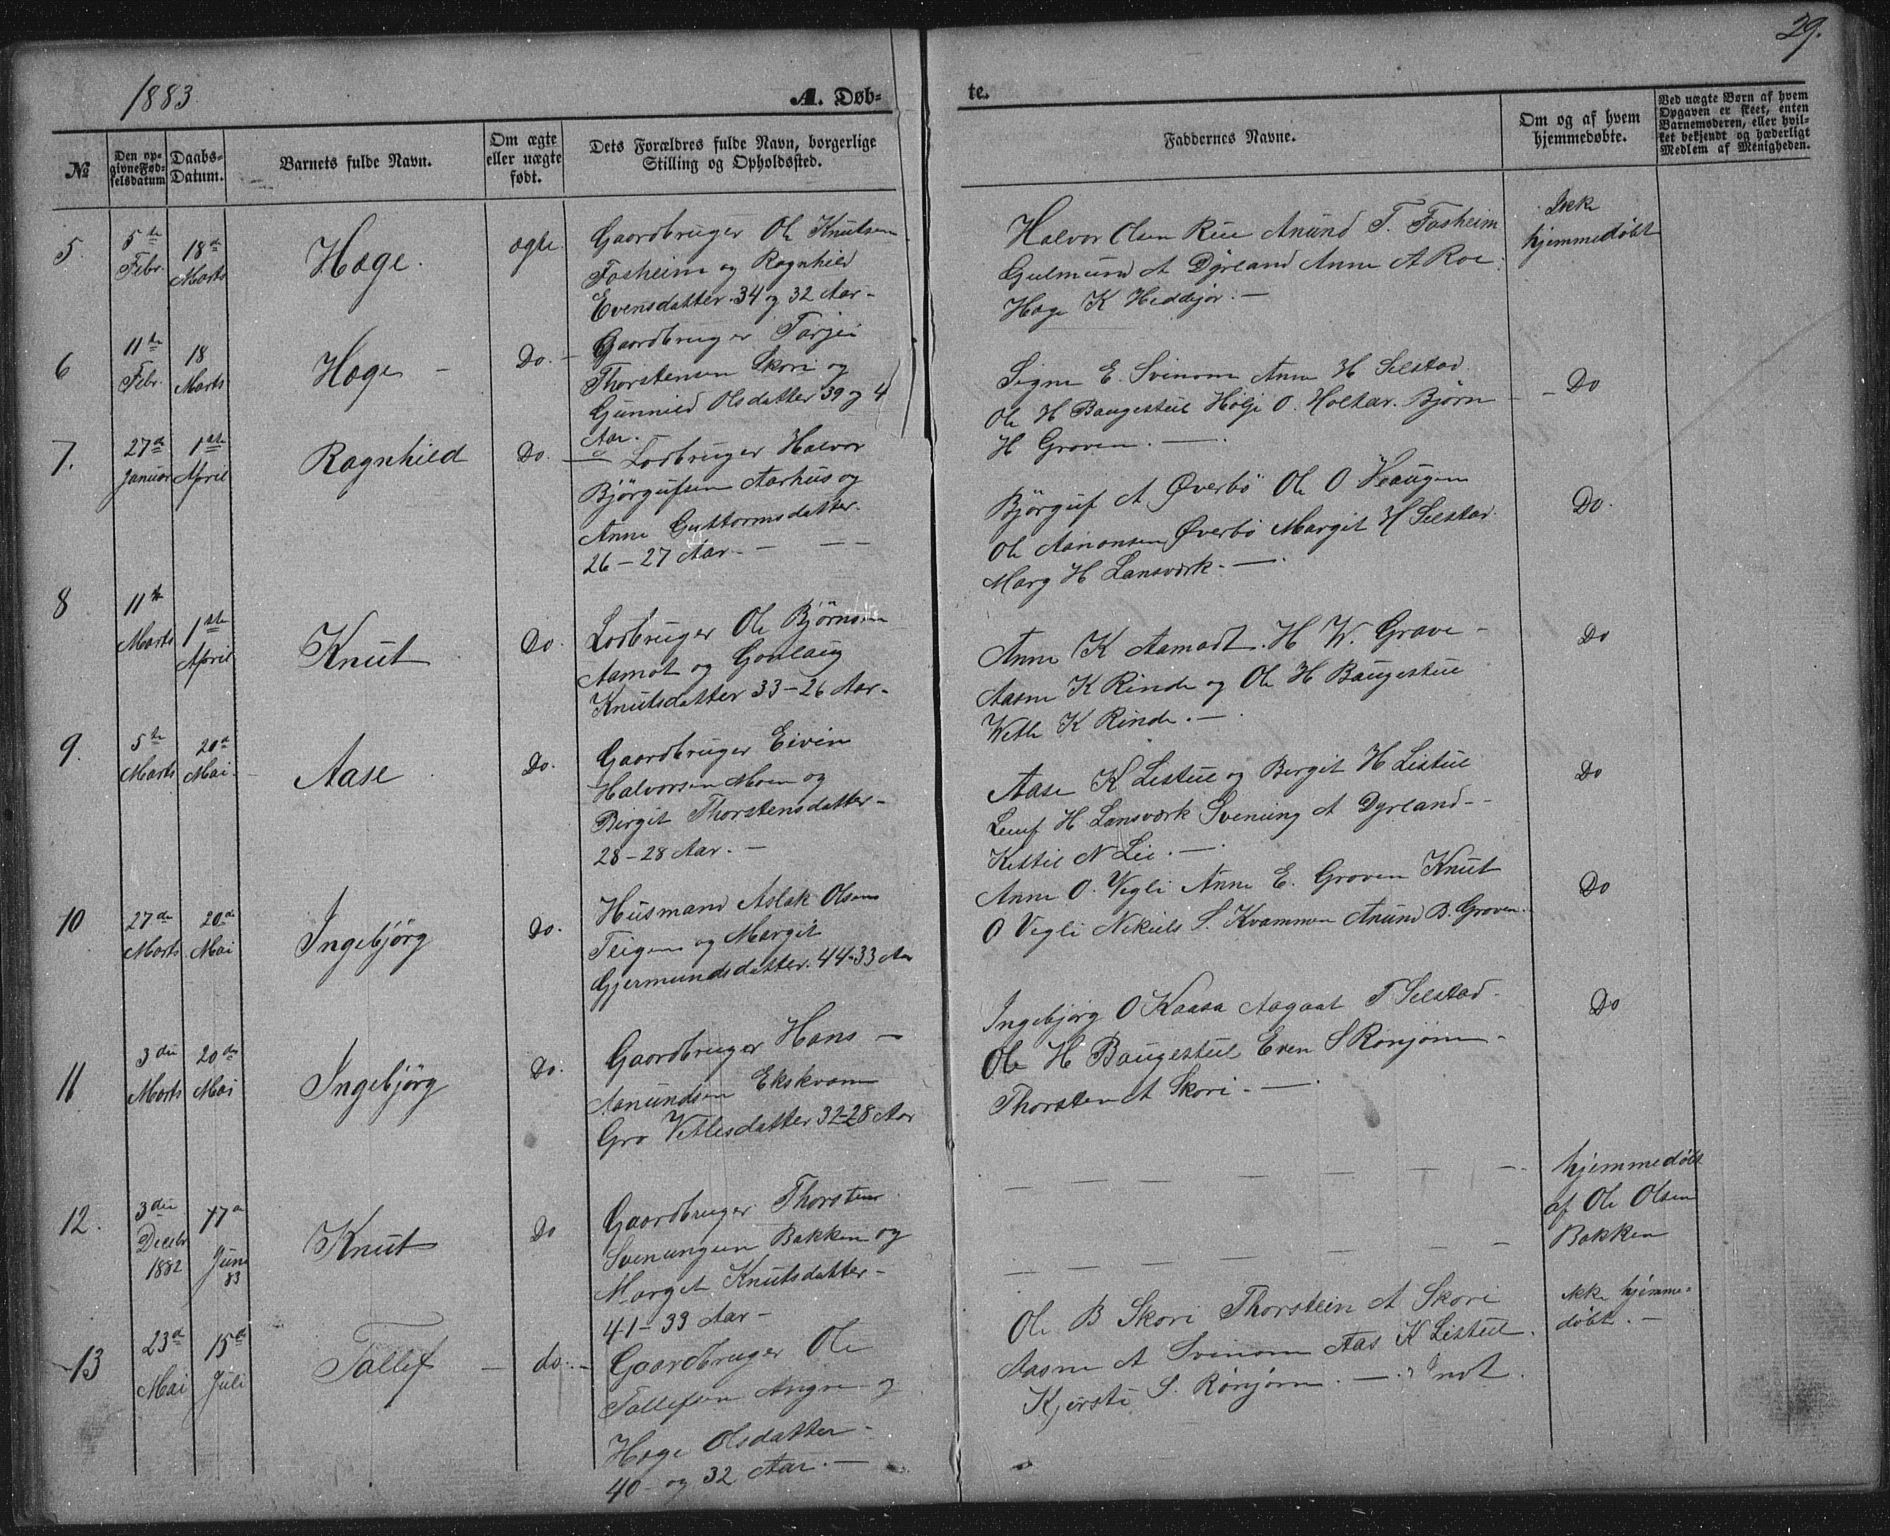 1883
A. Døb-
te.
29.
№
Den op-
givne Fød-
selsdatum
Daabs-
Datum.
Barnets fulde Navn.
Om ægte
eller uægte
født.
Dets Forældres fulde Navn, borgerlige
Stilling og Opholdssted.
Faddernes Navne.
Om og af hvem
hjemmedøbte.
Ved uægte Børn af hvem
Opgaven er skeet, enten
Barnemoderen, eller hvil-
ket bekjendt og hæderligt
Medlem af Menigheden.
5.
5te
Febr.
18de
Marts
Hæge.
ægte.
Gaardbruger Ole Knutsen
Fosheim og Ragnhild
Evensdatter 34 og 32 Aar -
Halvor Olsen Rue Anund T. Fosheim
Gulmund A Dyrland Anne A Roe
Hæge K Heddejor. —
Ikke
hjemmedøbt
6
11te
Febr.
18
Marts
Hæge -
Do. -
Gaardbruger Tarjei
Thorstensen Skori og
Gunnild Olsdatter 39 og 4
Aar. -
Signe E. Svinom Anne H Selstad.
Ole H Baugestul Hølje O. Holtar. Bjørn -
H Groven. —
- Do
7.
27de
Januar
1ste
April
Ragnhild
Do. -
Lodbruger Halvor
Bjørgufsen Aarhus og
Anne Guttormsdatter.
26 - 27 Aar. - —
Bjørguf A Øverbö Ole O Haugen
Ole Aanonsen Øverbö Margit H Selstad.
Marg H Lansværk. —
Do.
8
11te
Marts
1ste
April
Knut
Do.
Lodbruger Ole Bjørnsen
Aamot og Gonlaug
Knutsdatter 33 - 26 Aar -
Anne K Aamodt. H W. Grave -
Aasne K Rinde og Ole H Baugestul
Wetle K Rinde. —
Do
9.
5te
Marts
20de
Mai.
Aase
Do.
Gaardbruger Eivin
Halvorsen Moen og
Birgit Thorstensdatter -
28 - 28 Aar. -
Aase K Listul og Birgit H Listul
Leuf H Lansværk Svenung A Dyrland - -
Kittil N Lie. —
Do
10
27de
Marts
20de
Mai
Ingebjørg
Do.
Husmand Aslak Olsen
Teigen og Margit
Gjermundsdatter. 44 - 33 Aar
Anne O. Vegli Anne E. Groven Knut
O Vegli Nekuls S. Kvammen Anund B. Groven.
Do
11
3die
Marts
20de
Mai
Ingebjørg
Do.
Gaardbruger Hans -
Aanundsen Ekskvam
Gro Vetlesdatter 32-28 Aar
Ingebjørg O Kaasa Aagaat T Selstad -
Ole H Baugestul Even S Rønjom -
Thorsten A Skori. —
Do
12.
3die
Decbr
1882
17de
Juni
83
Knut
Do
Gaardbruger Thorsten
Svenungsen Bakken og
Marget Knutsdatter -
41 - 33 Aar -
hjemmedøbt
af Ole Olsen
Bakken
13
23de
Mai
15de
Juli
Tollef -
do. -
Gaardbruger Ole
Tollefsen Angre og
Hæge Olsdatter -
40 - og 32 Aar. -
Ole B Skori Thorstein A Skori
Aasne A Svinom Aas K Listul.
Kjersti S. Rønjom. —
ikke hjemme-
døbt. -